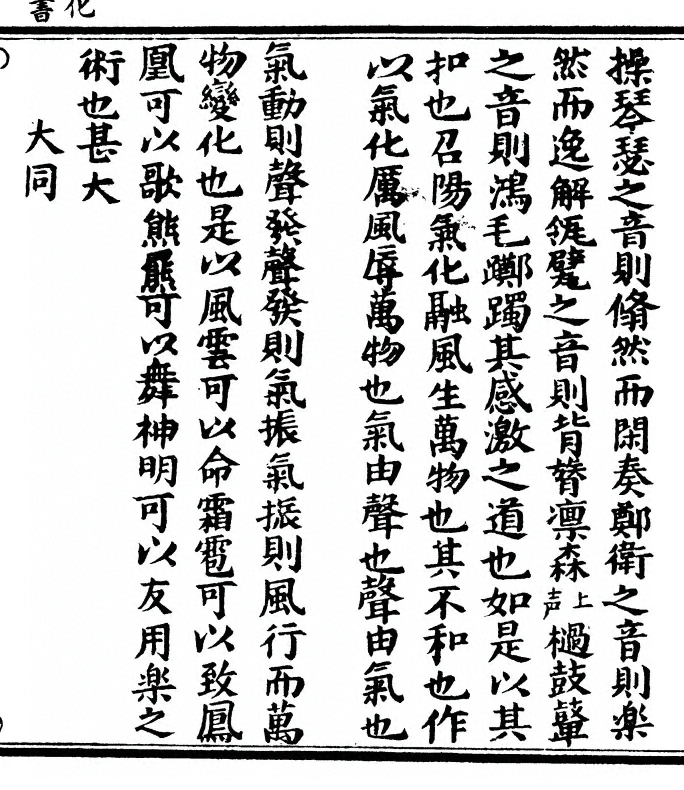 操琴瑟之音則翛然而閑奏鄭衛之音則楽
然而逸解瓴甓之音則背膂凛森上声檛鼓鼙
之音則鴻毛躑躅其感激之道也如是以其
扣也召陽氣化融風生萬物也其不和也作
以氣化厲風辱萬物也氣由聲也聲由氣也
氣動則聲發聲發則氣振氣振則風行而萬
物變化也是以風雲可以命霜雹可以致鳳
凰可以歌熊羆可以舞神明可以友用楽之
術也甚大
大同
化書